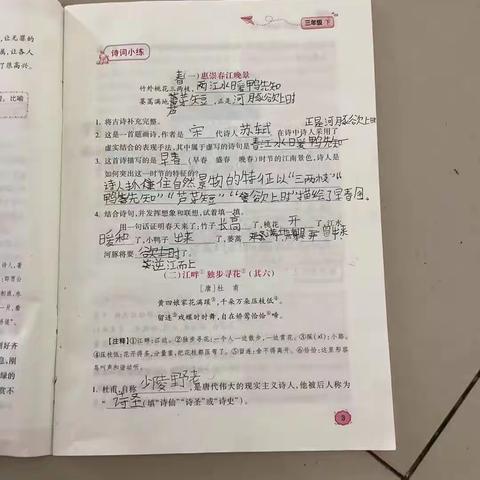 三年级 下
诗词小练
春
(一)惠崇春江晚景
竹外桃花三两枝,两江水暖鸭先知
蒌蒿满地芦芽短,正是河豚欲上时
1. 将古诗补充完整。 正是河豚欲上时
2. 这是一首题画诗,作者是 宋 代诗人 苏轼 在诗中诗人采用了
虚实结合的表现手法,其中属于虚写的诗句是 春江水暖鸭先知
3. 这首诗描写的是 早春 (早春 盛春 晚春)时节的江南景色,诗人是
如何突出这一时节的特征的?
诗人抓住自然景物的特征以“三两枝”
鸭先知”“芦芽短”“欲上时”描绘了早春图。
4. 结合诗句,并发挥想象和联想,试着填一填。
用一句话证明春天来了:竹子 长高 了,桃花 开 了,江水
暖和 了,小鸭子 出来 了,蒌蒿
河豚将要 欲上时 了。
逆江而上
(二)江畔①独步寻花②(其六)
[唐] 杜 甫
黄四娘家花满蹊③,千朵万朵压枝低④。
留连⑤戏蝶时时舞,自在娇莺恰恰⑥啼。
【注释】①江畔:江边。②独步寻花:一个人一边散步,一边赏花。③蹊(xī):小路。
④压枝低:花开得多,分量重,把花枝都压弯了。⑤留连:舍不得离开。⑥恰恰:这里形容
鸟叫声和谐动听。
1. 杜甫,自称 少陵野老 ,是唐代伟大的现实主义诗人,他被后人称为
“ 诗圣 (填“诗仙”“诗圣”或“诗史”)。
3